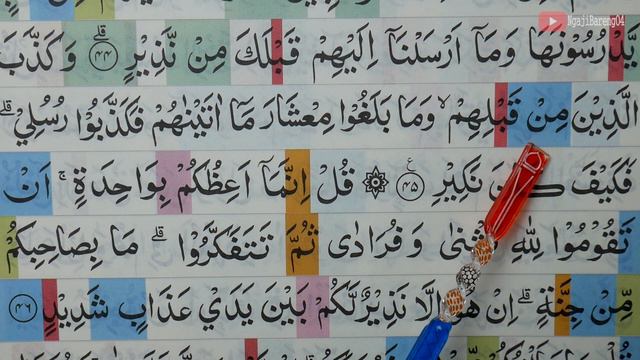 NgajiBareng04
يَّدْرُسُوْنَهَا وَمَآ اَرْسَلْنَآ اِلَيْهِمْ قَبْلَكَ مِنْ نَّذِيْرٍۗ ٤٤ وَكَذَّبَ
الَّذِيْنَ مِنْ قَبْلِهِمْۙ وَمَا بَلَغُوْا مِعْشَارَ مَآ اٰتَيْنٰهُمْ فَكَذَّبُوْا رُسُلِيْۗ
فَكَيْفَ نَكِيْرِ ࣖ ٤٥ ۞ قُلْ اِنَّمَآ اَعِظُكُمْ بِوَاحِدَةٍۚ اَنْ
تَقُوْمُوْا لِلّٰهِ مَثْنٰى وَفُرَادٰى ثُمَّ تَتَفَكَّرُوْاۗ مَا بِصَاحِبِكُمْ
مِّنْ جِنَّةٍۗ اِنْ هُوَ اِلَّا نَذِيْرٌ لَّكُمْ بَيْنَ يَدَيْ عَذَابٍ شَدِيْدٍ ٤٦